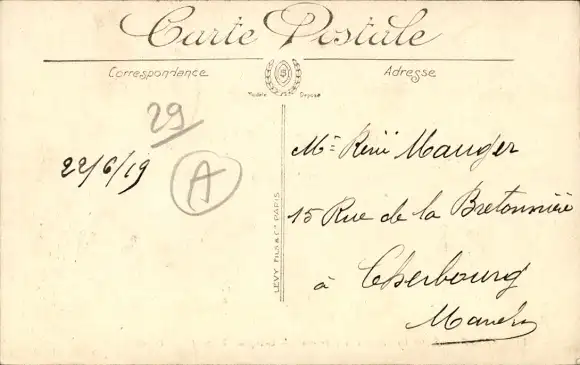 Carte Postale
Correspondance
Adresse
Modèle Déposé
29
22/6/19
A
LEVY FILS & Cie PARIS
Mr René Mauger
15 Rue de la Bretonnière
à Cherbourg
Manche